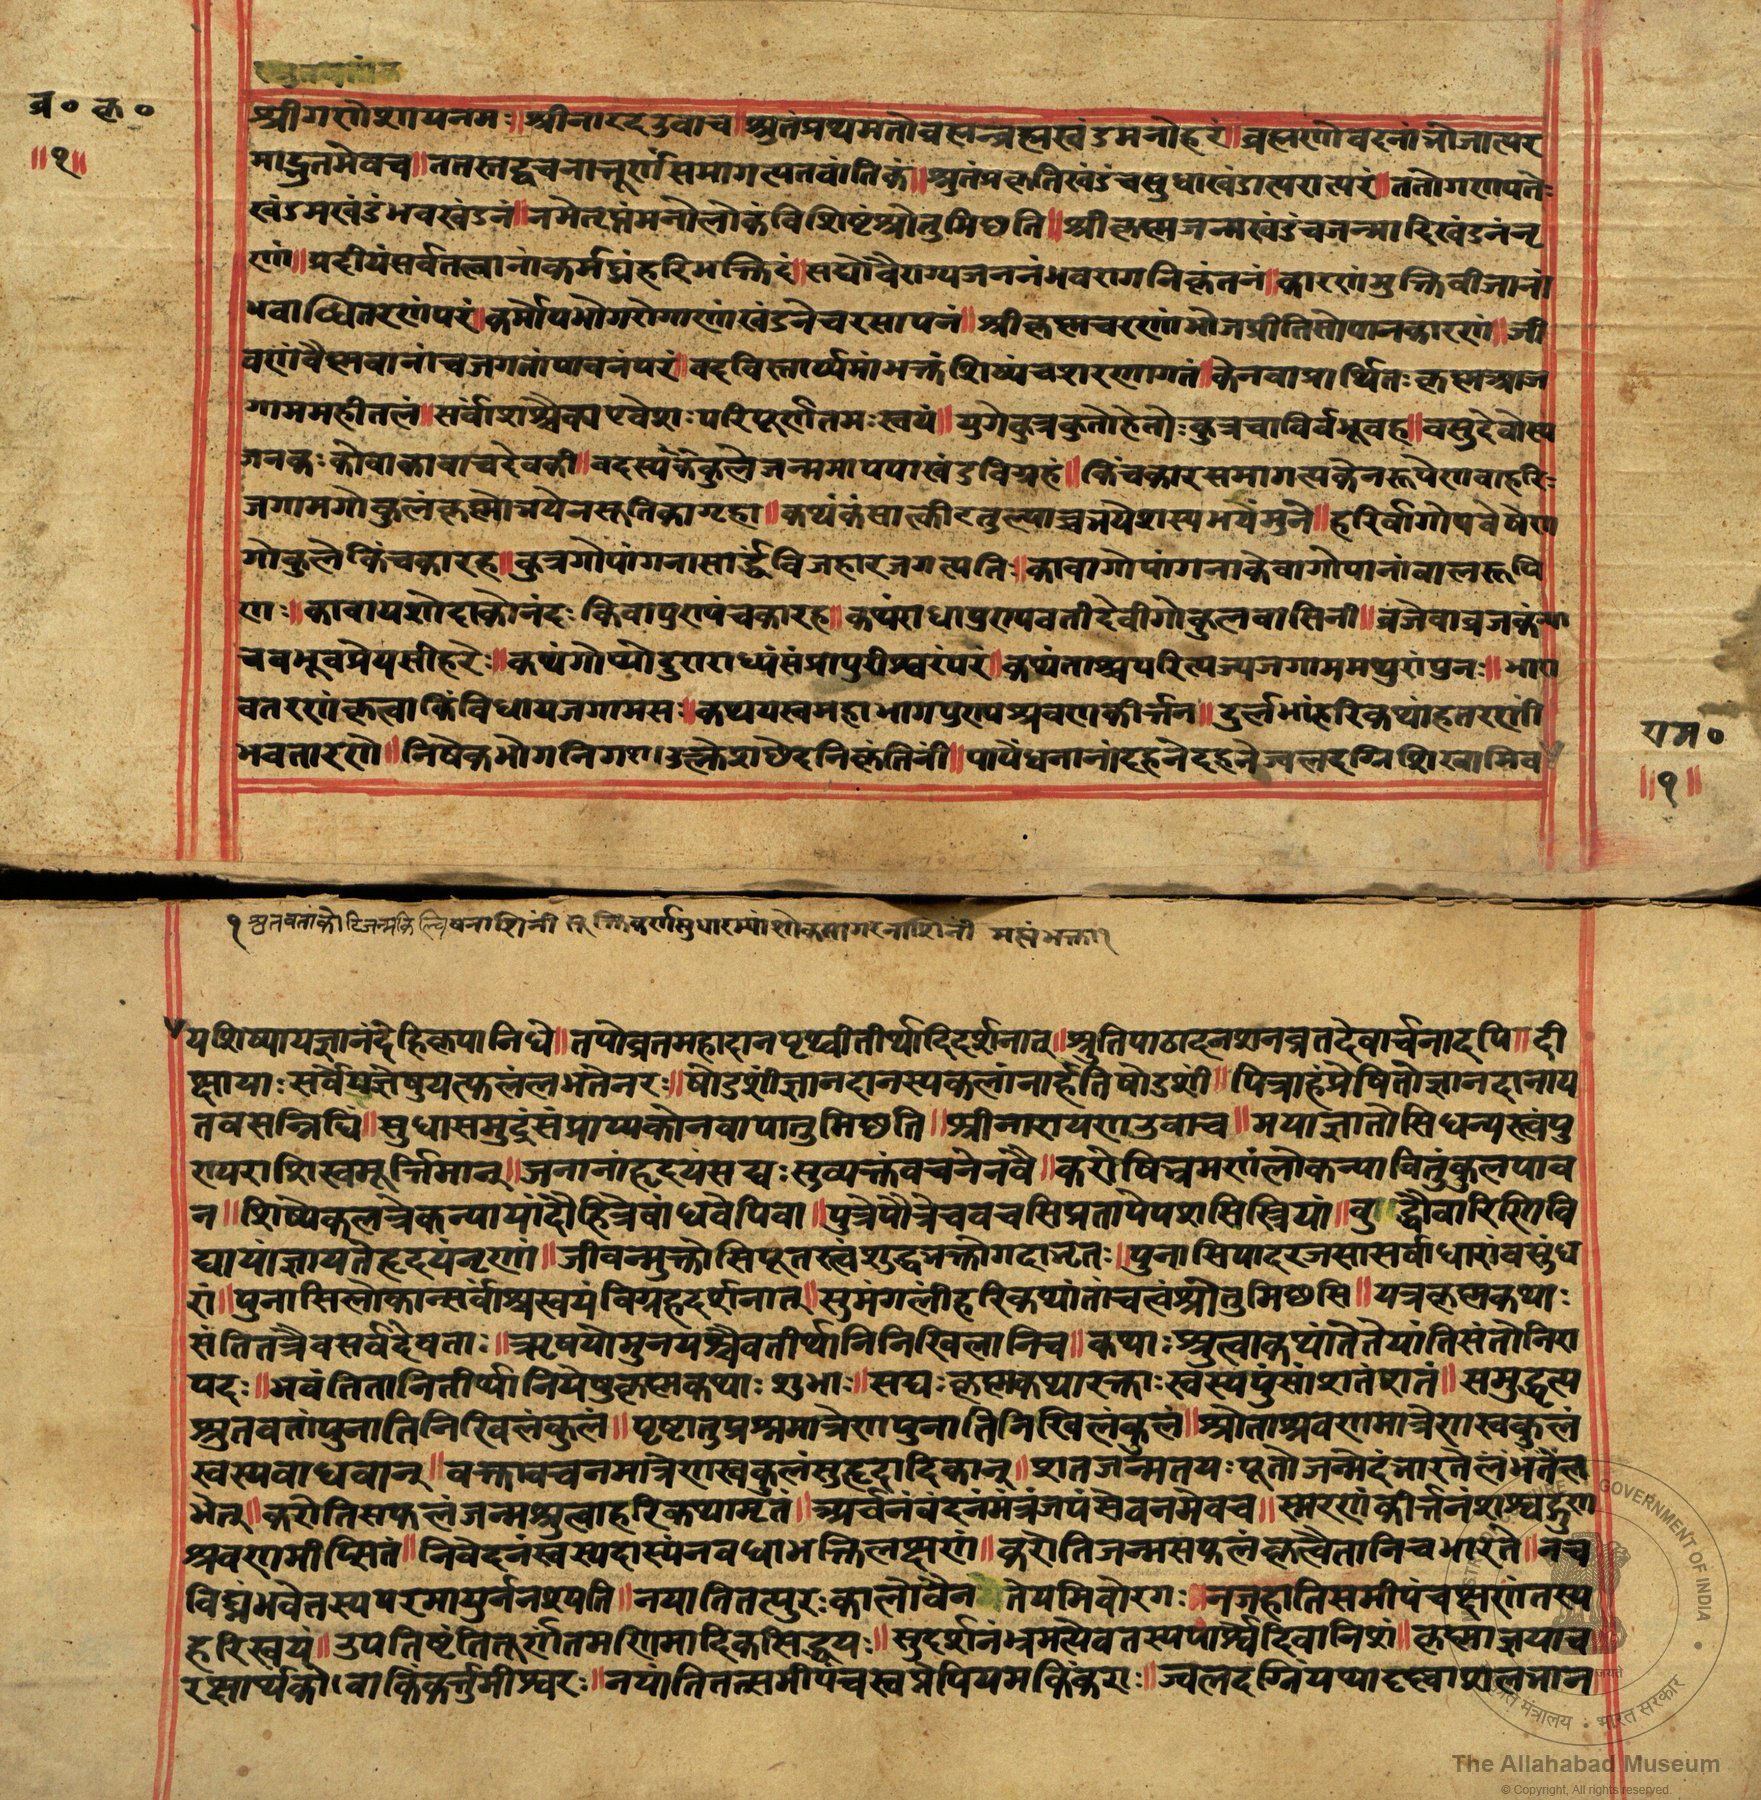 ब्र० कृ०
॥१॥
श्रीगणेशायनमः॥श्रीनारदउवाच॥श्रुतंप्रथमतोब्रह्मन्ब्रह्मखंडमनोहरं॥ब्रह्मणोवदनांभोजात्पर
माद्भुतमेवच॥ततस्तद्वचनात्तूर्णंसमागत्यतवांतिकं॥श्रुतंप्रकृतिखंडंचसुधाखंडात्परात्परं॥ततोगणपतेः
खंडमखंडंभवखंडनं॥नमेतृप्तंमनोलोकंविशिष्टंश्रोतुमिछति॥श्रीकृष्मजन्मखंडंचजन्मादिखंडनंनृ
णां॥प्रदीपंसर्वतत्वानांकर्मघ्नंहरिभक्तिदं॥सद्योवैराग्यजननंभवरागनिकृंतनं॥कारणंमुक्तिवीजानां
भवाब्धितरणंपरं॥कर्मोपभोगरोगाणांखंडनेचरसायनं॥श्रीकृष्मचरणांभोजप्रीतिसोपानकारणं॥जी
वणंवैष्मवानांचजगतांपावनंपरं॥वदविस्तार्य्यमांभक्तंशिष्यंचशरणागतं॥केनवाप्रार्थितःकृष्मआज
गाममहीतलं॥सर्वांशश्चैकएवेशःपरिपूर्णतमःस्वयं॥युगेकुत्रकुतोहेतोःकुत्रचाविर्वभूवह॥वसुदेवोस्य
जनकःकोवाकावाचदेवकी॥वदस्यकंकुलेजन्ममापपाखंडविग्रहं॥किंचकारसमागत्यकेनरूपेणवाहरिः
जगामगोकुलंकृष्मोत्रयेनसूतिकागृहा॥कथंकंसात्कीटतुल्याच्चभयेशस्यभयंमुने॥हरिर्वागोपवेषेण
गोकुलेकिंचकारह॥कुत्रगोपांगनासार्द्धंविजहारजगत्पतिः॥कावागोपांगनाकेवागोपानांवालरूपि
णः॥कावायशोदाकोनंदःकिवापुण्यंचकारह॥कथंराधापुण्यवतीदेवीगोकुलवासिनी॥व्रजेवाव्रजकंन्या
चवभूवप्रेयसीहरेः॥कथंगोप्योदुराराध्यंसंप्रापुरीश्वरंपरं॥कथंताश्चपरित्यज्यजगाममथुरांपुनः॥भारा
वतरणंकृत्वाकिंविधायजगामसः॥कथयस्वमहाभागपुण्यश्रवणकीर्त्तन॥दुर्लभांहरिकथांहतरणीं
भवतारणे॥निषेकभोगनिगडक्लेशछेदनिकृंतिनीं॥पापेंधनानांदहनेदहनेज्वलदग्निशिखामिव
राम०
॥१॥
१ श्रुतवतांकोटिजन्मकिल्बिषनाशिनीं मुक्तिकर्णसुधारम्यांशोकसागरनाशिनीं मह्यंभक्ता१
यशिष्यायज्ञानंदेहिकृपानिधे॥तपोव्रतमहादानपृथ्वीतीर्थादिदर्शनात्॥श्रुतिपाठादनशनव्रतदेवार्चनादपि॥दी
क्षायाःसर्वेयज्ञेषुयत्फलंलभतेनरः॥षोडशींज्ञानदानस्यकलांनार्हतिषोडशीं॥पित्राहंप्रेषितोज्ञानंदानाय
तवसन्निधिं॥सुधासमुद्रंसंप्राप्यकोनवापातुमिछति॥श्रीनारायणउवाच॥मयाज्ञातोसिधन्यस्त्वंपु
ण्यराशिस्वमूर्त्तिमान्॥जनानांहृदयंसद्यःसुव्यक्तंवचनेनवै॥करोषिभ्रमणंलोकन्पावितुंकुलपाव
न॥शिष्येकलत्रेकन्यायांदौहित्रेवांधवेपिवा॥पुत्रेपौत्रेचवचसिप्रतापेयशसिस्त्रियां॥वुद्धौवारिणिवि
द्यायांज्ञायतेहृदयंनृणां॥जीवन्मुक्तोसिपूतस्त्वंशुद्धभक्तोगदाभृतः॥पुनासिपादरजसासर्वाधारांवसुंध
रां॥पुनासिलोकान्सर्वांश्चस्वयंविग्रहदर्शनात्॥सुमंगलींहरिकथांतांचत्वंश्रोतुमिछसि॥यत्रकृष्मकथाः
संतितत्रैवसर्वदेवताः॥ऋषयोमुनयश्चैवतीर्थानिनिखिलानिच॥कथाःश्रुत्वाकथांतेतेयांतिसंतोनिरा
पदः॥भवंतितानितीर्थानियेषुकृष्मकथाःशुभाः॥सद्यःकृष्मकथारक्ताःस्वस्यपुंसांशतंशतं॥समुद्धृत्य
श्रुतवतांपुनातिनिखिलंकुलं॥पृष्टातुप्रश्नमात्रेणपुनातिनिखिलंकुलं॥श्रोताश्रवणमात्रेणस्वकुलं
स्वस्यवांधवान्॥वक्तावचनमात्रेणस्वकुलंसुहृदादिकान्॥शतजन्मतपःपूतोजन्मेदंभारतेलंभतेल
भेत्॥करोतिसफलंजन्मश्रुत्वाहरिकथामृतं॥अर्चनंवंदनंमंत्रंजपंसेवनमेवच॥स्मरणंकीर्त्तनंशश्वद्गुण
श्रवणमीप्सितं॥निवेदनंस्वस्यदास्यंनवधाभक्तिलक्षणं॥करोतिजन्मसफलंकृत्वैतानिचभारते॥नच
विघ्नंभवेत्तस्यपरमायुर्ननश्यति॥नयातितत्पुरःकालोवैनतेयमिवोरगः॥नजहातिसमीपंचक्षणंतस्य
हरिस्वयं॥उपतिष्टंतितूर्णंतमणिमादिकसिद्धयः॥सुदर्शनंभ्रमत्येवतस्यपार्श्वेदिवानिशं॥कृष्माज्ञयाच
रक्षार्थंकोवाकिंकर्त्तुमीश्वरः॥नयांतितत्समीपंचस्वप्नेपियमकिंकराः॥ज्वलदग्नियथादृष्ट्वाशलभान
GOVERNMENT OF INDIA
भारत सरकार
The Allahabad Museum
© Copyright, All rights reserved.